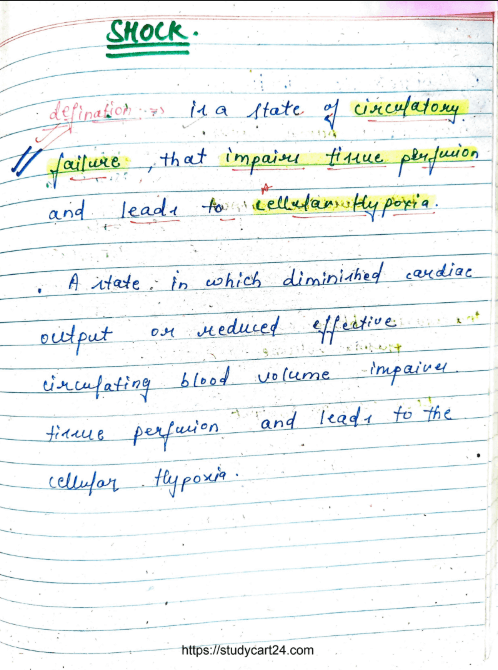 SHOCK.
defination :-> is a state of circulatory
failure, that impairs tissue perfusion
and leads to cellular Hypoxia.
. A state in which diminished cardiac
output or reduced effective
circulating blood volume impaires
tissue perfusion and leads to the
cellular Hypoxia.
https://studycart24.com